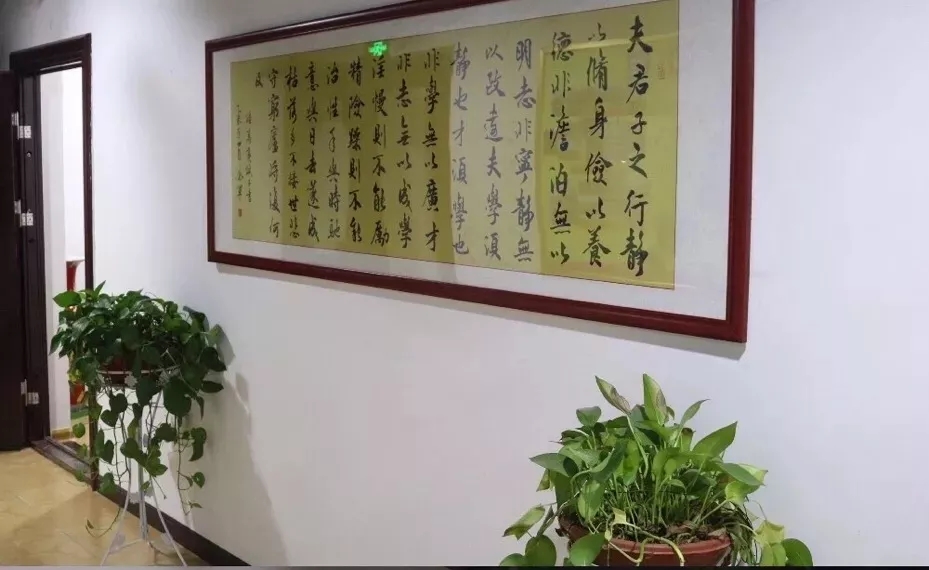 夫君子之行静
以脩身儉以養
德非澹泊無以
明志非寧静無
以致遠夫學須
静也才須學也
非學無以廣才
非志無以成學
淫慢則不能勵
精險躁則不能
治性年與時馳
意與日去遂成
枯落多不接世悲
守窮廬將復何
及